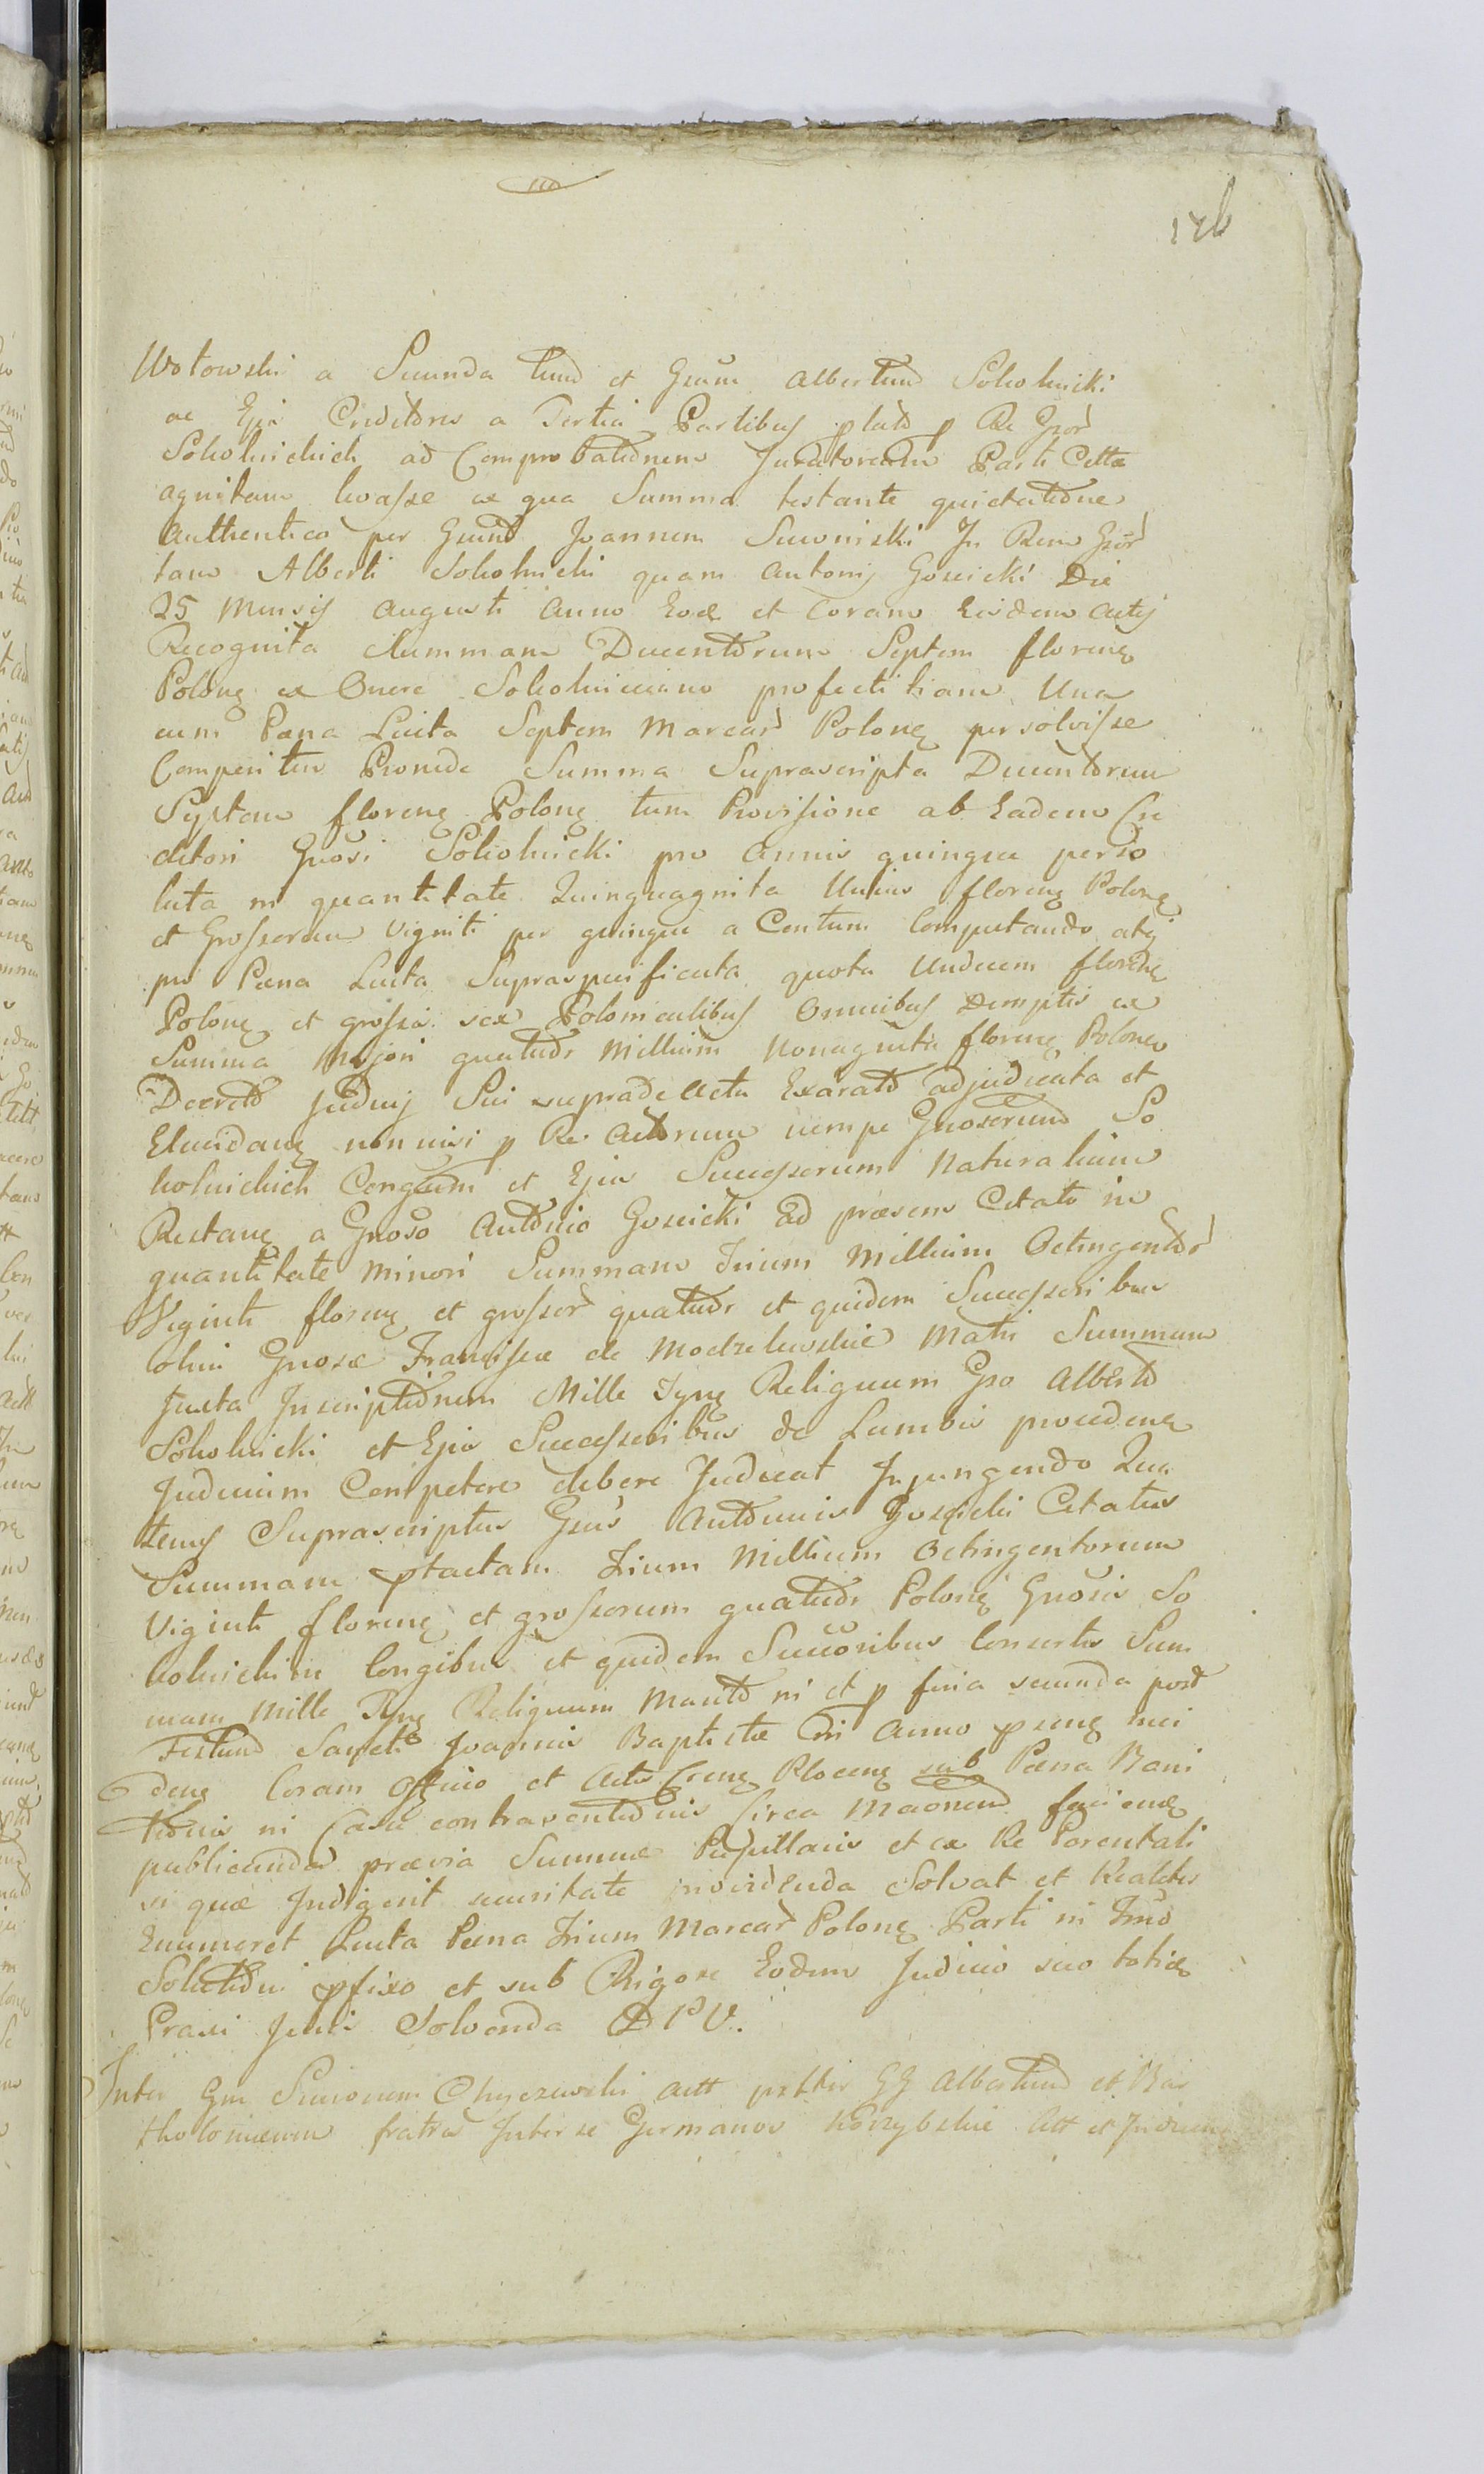 176
Wołowski a Secunda tum et Gsum Albertum Sokolnicki
ac Ejus Creditores a Tertia Partibus plato p Re Gsor
Sokolnickich ad Comprobationem Juratoream Parti Cttae
agnitam levasse ex qua Summa testante quietatione
Authentica per Gsum Joannem In Rem Gsor
tam Alberti Sokolnicki quam Antonij Goscicki Die
25 Mensis Augusti Anno Eod et Coram Eisdem Actis
Recognita Summam Ducentorum Septem floreng
Polong ex Onere Sokolniciano profectitiam Una
cum Pæna Luita Septem Marcar Polong persolvisse
Comperitur Proinde Summa Suprascripta Ducentorum
Septem floreng Polong tum Provisione ab Eadem Cre
ditori Gnosi Sokolnicki pro Annis quinque perso
luta in quantitate Quinquaginta Unius floreng Polong
et Grossorum viginti per quinque a Centum Computando atq
pro Pæna Luita Supraspecificata quota Undecem floreng
Polong et grossis sex Polonicalibus Omnibus Demptis ex
Summa Majori quatuor Millium Nonaginta floreng Polong
Decreto Judicij Sui supra de Actu Exarato adjudicata et
Elucidang non nisi p Re Actorum nempe Gnosorum So
kolnickich Congum et Ejus Successorum Naturalium
Restang a Gnoso Antonio Goscicki Ad præsens Citato in
quantitate Minori Summam Trium Millium Octingentor
Viginti floreng et grossor quatuor et quidem Successoribus
olim Gnosæ Franciscæ de Modzelewskie Matri Summam
Juxta Inscriptionem Mille Tyng Reliquum Gso Alberto
Sokolnicki et Ejus Successoribus de Lumbis proceden
Judicium Competere debere Judicat Injungendo Qua
tenus Suprascriptus Gsus Antonius Goscicki Citatus
Summam ptactam Trium Millium Octingentorum
Viginti floreng et grossorum quatuor Polong Gnosis So
kolnickim Congibus et quidem Succoribus Consortis Sum
mam Mille Tyng Reliquum Marito in et p feria secunda post
Festum Sancti Joannis Baptistæ in Anno pseng inci
deng Coram Officio et Actis Plocens sub Pæna Bani
tionis in Casu contraventionis Circa faciend
publicanda prævia Summæ Pupillaris et ex Re Parentali
si quæ Indigerit securitate providenda Solvat et Realiter
Enumeret Luita Pæna Trium Marcar Polong Parti in Tmo
Solutioni pfixo et sub Rigore Eodem Judicio suo toties
Praxi Juris Solvenda D P V.
Inter Gm Simonem Chyczewski Actt GG Albertum et Bar
tholomæum fratres Inter se Germanos Att et Judicium